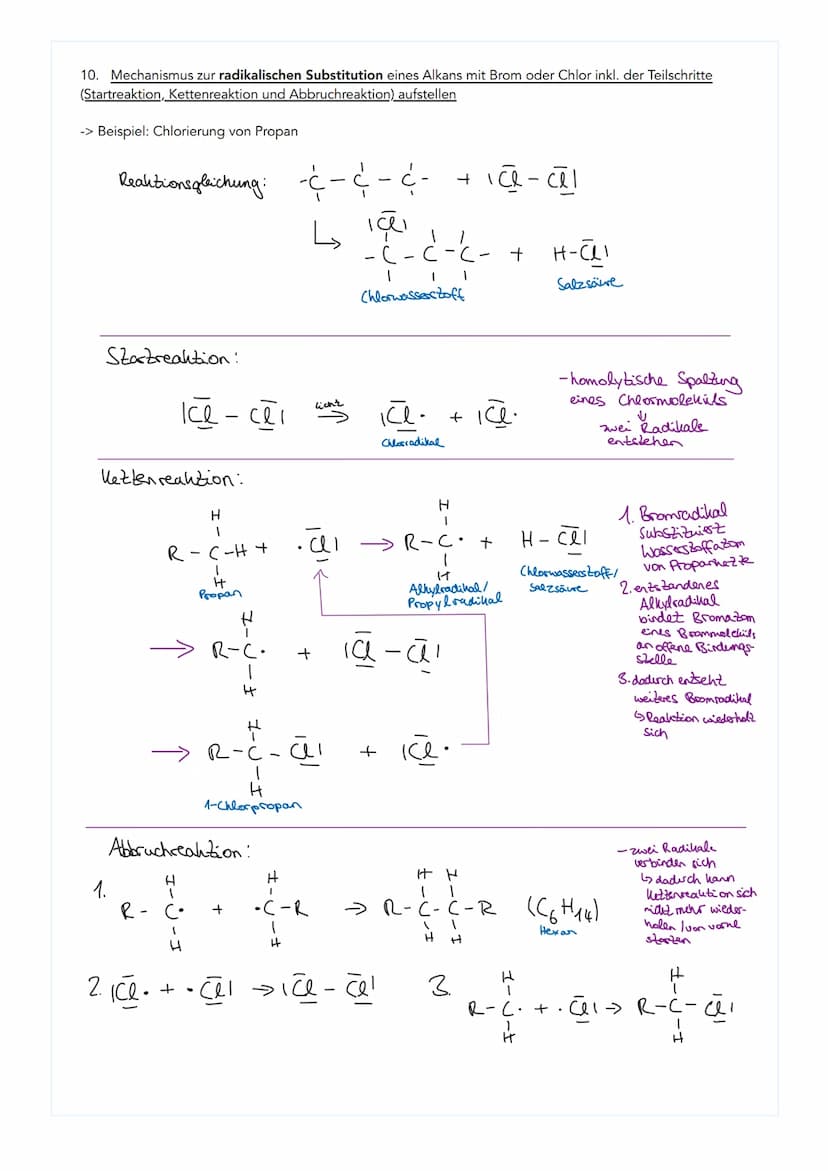 10. Mechanismus zur radikalischen Substitution eines Alkans mit Brom oder Chlor inkl. der Teilschritte
(Startreaktion, Kettenreaktion und Abbruchreaktion) aufstellen
-> Beispiel: Chlorierung von Propan
Reaktionsgleichung: -C-C-C- + |Cl-Cl|
|Cl|
-C-C-C- + H-Cl|
Chlorwasserstoff
Salzsäure
Startreaktion:
|Cl-Cl| Licht ⇒ |Cl· + |Cl·
Chlorradikal
-homolytische Spaltung
eines Chlormoleküls
↓
zwei Radikale
entstehen
Kettenreaktion:
H
R-C-H + ·Cl| → R-C· + H-Cl|
H
Propan
H
H
Alkylradikal/
Propylradikal
Chlorwasserstoff/
Salzsäure
H
R-C· + |Cl-Cl|
H
H
→ R-C-Cl| + |Cl·
H
1-Chlorpropan
1. Bromradikal
substituiert
Wasserstoffatom
von Propankette
2. entstandenes
Alkylradikal
bindet Bromatom
eines Brommoleküls
an offene Bindungs-
stelle
3. dadurch entseht
weiteres Bromradikal
↳ Reaktion wiederholt
sich
Abbruchreaktion:
1.
H H H H
R-C· + ·C-R → R-C-C-R (C6H14)
H H H H
Hexan
-zwei Radikale
verbinden sich
↳ dadurch kann
Kettenreaktion sich
nicht mehr wieder-
holen / von vorne
starten
2. |Cl· + ·Cl| → |Cl-Cl|
3.
H H
R-C· + ·Cl| → R-C-Cl|
H H